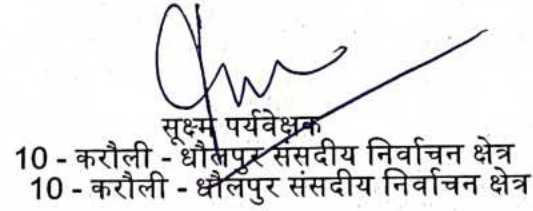 सूक्ष्म पर्यवेक्षक
10 - करौली - धौलपुर संसदीय निर्वाचन क्षेत्र
10 - करौली - धौलपुर संसदीय निर्वाचन क्षेत्र